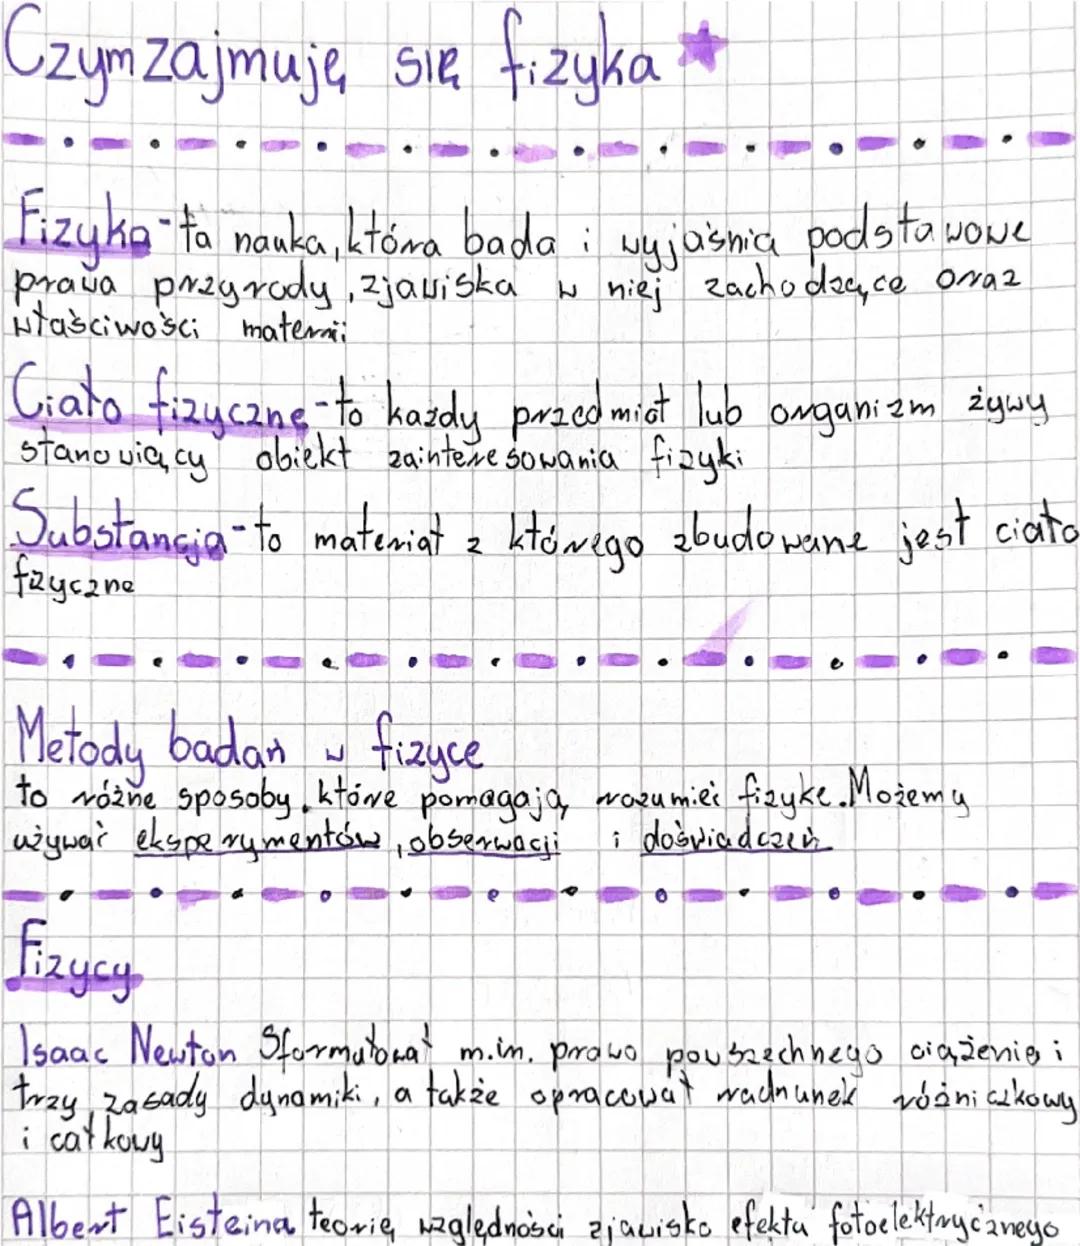 Czym zajmuję się fizyka
Fizyka - ta nauka, która bada i wyjaśnia podstawowe
prawa przyrody, zjawiska w niej zachodzące oraz
właściwości materii
Ciało fizyczne - to każdy przedmiot lub organizm żywy
stanowiący obiekt zainteresowania fizyki
Substancja - to materiał z którego zbudowane jest ciało
fizyczne
Metody badań w fizyce
to różne sposoby, które pomagają rozumieć fizykę. Możemy
używać eksperymentów, obserwacji i doświadczeń
Fizycy
Isaac Newton Sformułował m.in. prawo powszechnego ciążenia i
trzy zasady dynamiki, a także opracował rachunek różniczkowy
i całkowy
Albert Eisteina teorię względności zjawisko efektu fotoelektrycznego